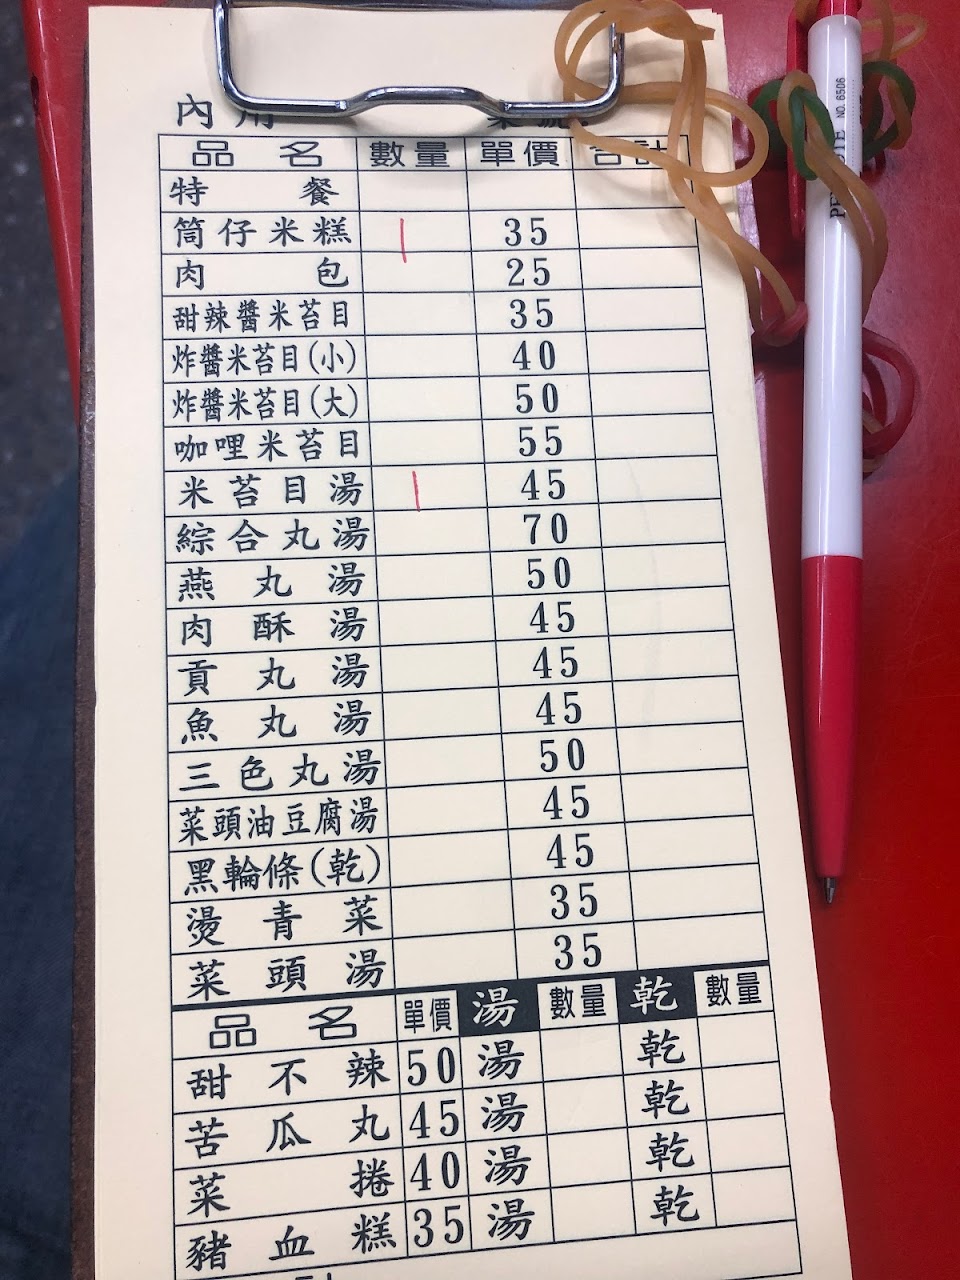 內用
品名 數量 單價 合計
特餐
筒仔米糕 | 35
肉包 25
甜辣醬米苔目 35
炸醬米苔目(小) 40
炸醬米苔目(大) 50
咖哩米苔目 55
米苔目湯 | 45
綜合丸湯 70
燕丸湯 50
肉酥湯 45
貢丸湯 45
魚丸湯 45
三色丸湯 50
菜頭油豆腐湯 45
黑輪條(乾) 45
燙青菜 35
菜頭湯 35
品名 單價 湯 數量 乾 數量
甜不辣 50 湯 乾
苦瓜丸 45 湯 乾
菜捲 40 湯 乾
豬血糕 35 湯 乾
NO. 6506